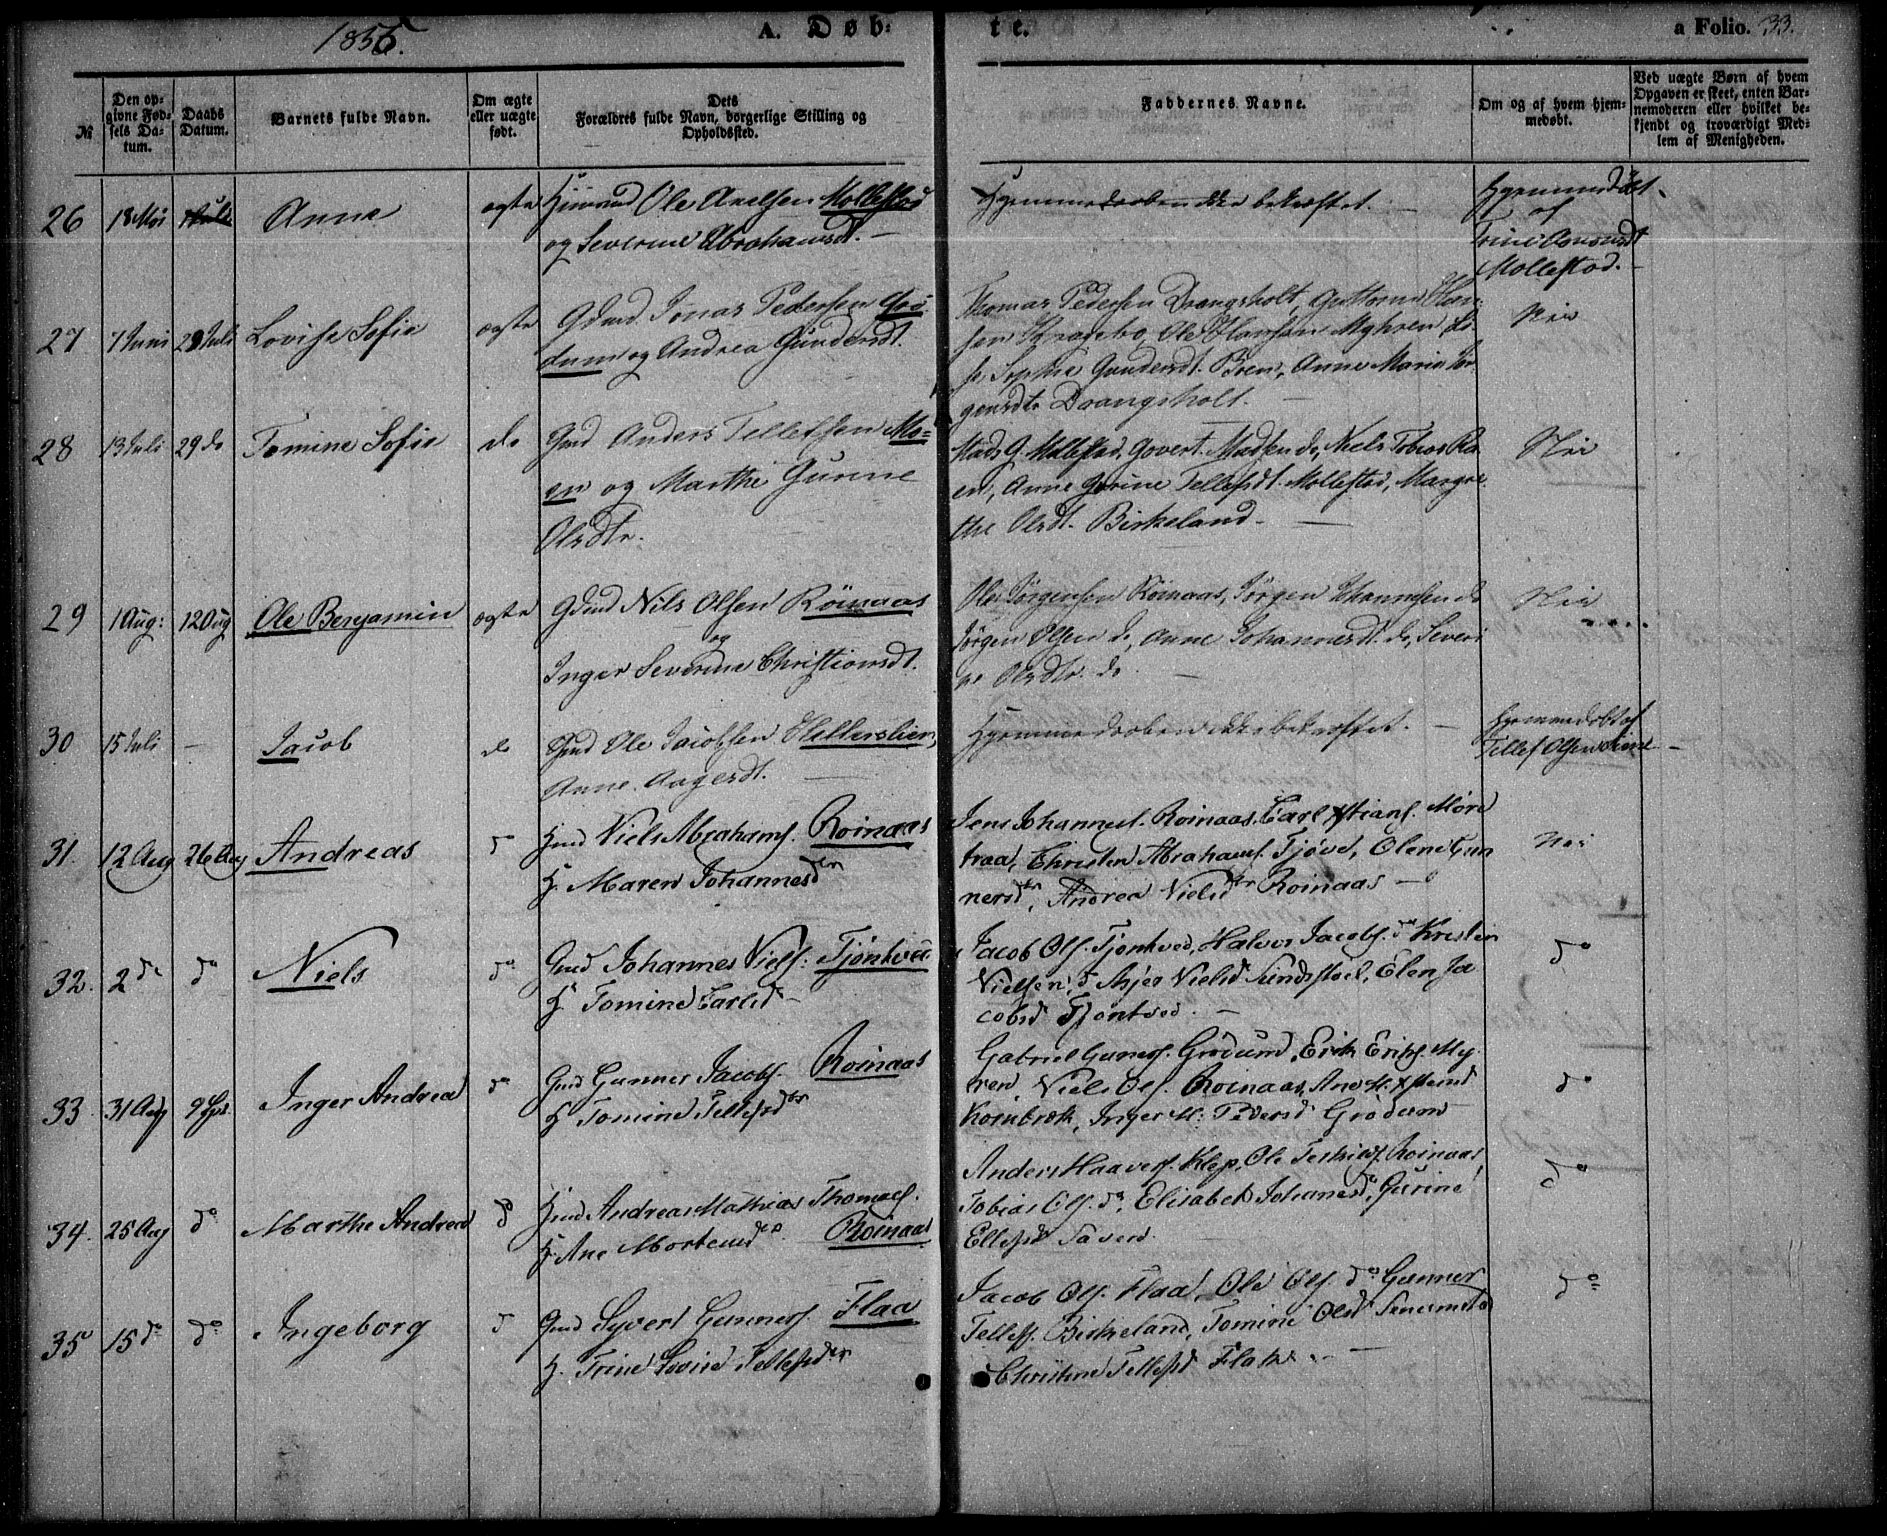 1855.
A. Døb-
te.
a Folio. 33.
№
Den op-
givne Fød-
sels Da-
tum.
Daabs
Datum.
Barnets fulde Navn.
Om ægte
eller uægte
født.
Dets
Forældres fulde Navn, borgerlige Stilling og
Opholdssted.
Faddernes Navne.
Om og af hvem hjem-
medøbt.
Ved uægte Børn af hvem
Opgaven er skeet, enten Bar-
nemoderen eller hvilket be-
kjendt og troværdigt Med-
lem af Menigheden.
26 18 Mai Anna ægte Ole Axelsen Mollestad
og Severine Abrahamsdt. —
Hjemmedaaben ikke bekræftet. —
Hjemmedøbt
af
Trine
Mollestad.
27 7 Juni 29 Juli Lovise Sofie ægte Gdmd. Jonas Pedersen Grö-
dum og Andrea Gundersdt.
Thomas Pedersen Drangsholt, Guttorm Han-
sen Ole Hansen Myhren
Sophie Gundersdt. Bren, Anne Maria Jör-
gensdtr Drangsholt. —
Nei
28 13 Juli 29 do Tomine Sofie do Gmd Anders Tellefsen Mo-
en og Marthe Gunne
Olsdtr.
Mads G. Mollestad, Govert Madsen do, Niels Tobias Ro-
en, Anne Gurine Tellefsdt. Mollestad, Margre-
the Olsdt. Birkeland —
Nei
29 1 Aug: 12 Aug Ole Benjamin ægte Gdmd Nils Olsen Röinaas
og
Inger Severine Christiansdt.
Ole Jørgensen Röinaas, Jørgen Johannesen do
Jørgen Olsen do, Anne Johannesdt. do, Severi-
ne Olsdtr. do —
Nei
30 15 Juli — Jacob do Gmd Ole Jacobsen Hellerslien,
Anne Aagesdt. —
Hjemmedaaben ikke bekræftet. —
Hjemmedøbt af
Tellef Olsen —
31. 12 Aug 26 Aug Andreas do Hmd Niels Abrahams. Roinaas
H. Maren Johannesdtr
Jens Johannes. Roinaas, Carl Xstians. Møre-
traa, Christen Abrahams. Tjøve, Olene Gun-
nersdtr, Andrea Nielsdtr Roinaas —
Nei
32. 2 do do Niels do Gmd Johannes Niels: Tjøntved
H. Tomine Carlsd —
Jacob Ols. Tjøntved, Halvor Jacobs. do Kristen
Nielsen do Asjer Nielsd Sundstøel, Elen Ja-
cobsd Tjøntved. —
do
33. 31 Aug 9 Spt. Inger Andrea do Gmd Gunner Jacobs. Roinaas
H Tomine Tellefsdtr
Gabriel Gunners. Grødum, Erik Eriks. My-
ren, Niels Ols. Roinaas, Ane M. Xstensd
Kornbrek, Inger M. Pedersd Grødum
do
34. 25 Aug do Marthe Andrea do Hmd Andreas Mathias Thomas.
H. Ane Mortensdtr. Roinaas
Anders Haavers. Klep, Ole Terkiels. Roinaas,
Tobias Ols. do, Elisabet Johanesd, Gurine
Ellefsd
do
35 15 do do Ingeborg do Gmd Syvert Gunners. Flaa
H. Trine Lovise Tellefsdtr
Jacob Ols. Flaa, Ole Ols. do Gunner
Tellefs. Birkeland, Tomine Olsd
Christine Tellefsd Flak. —
do